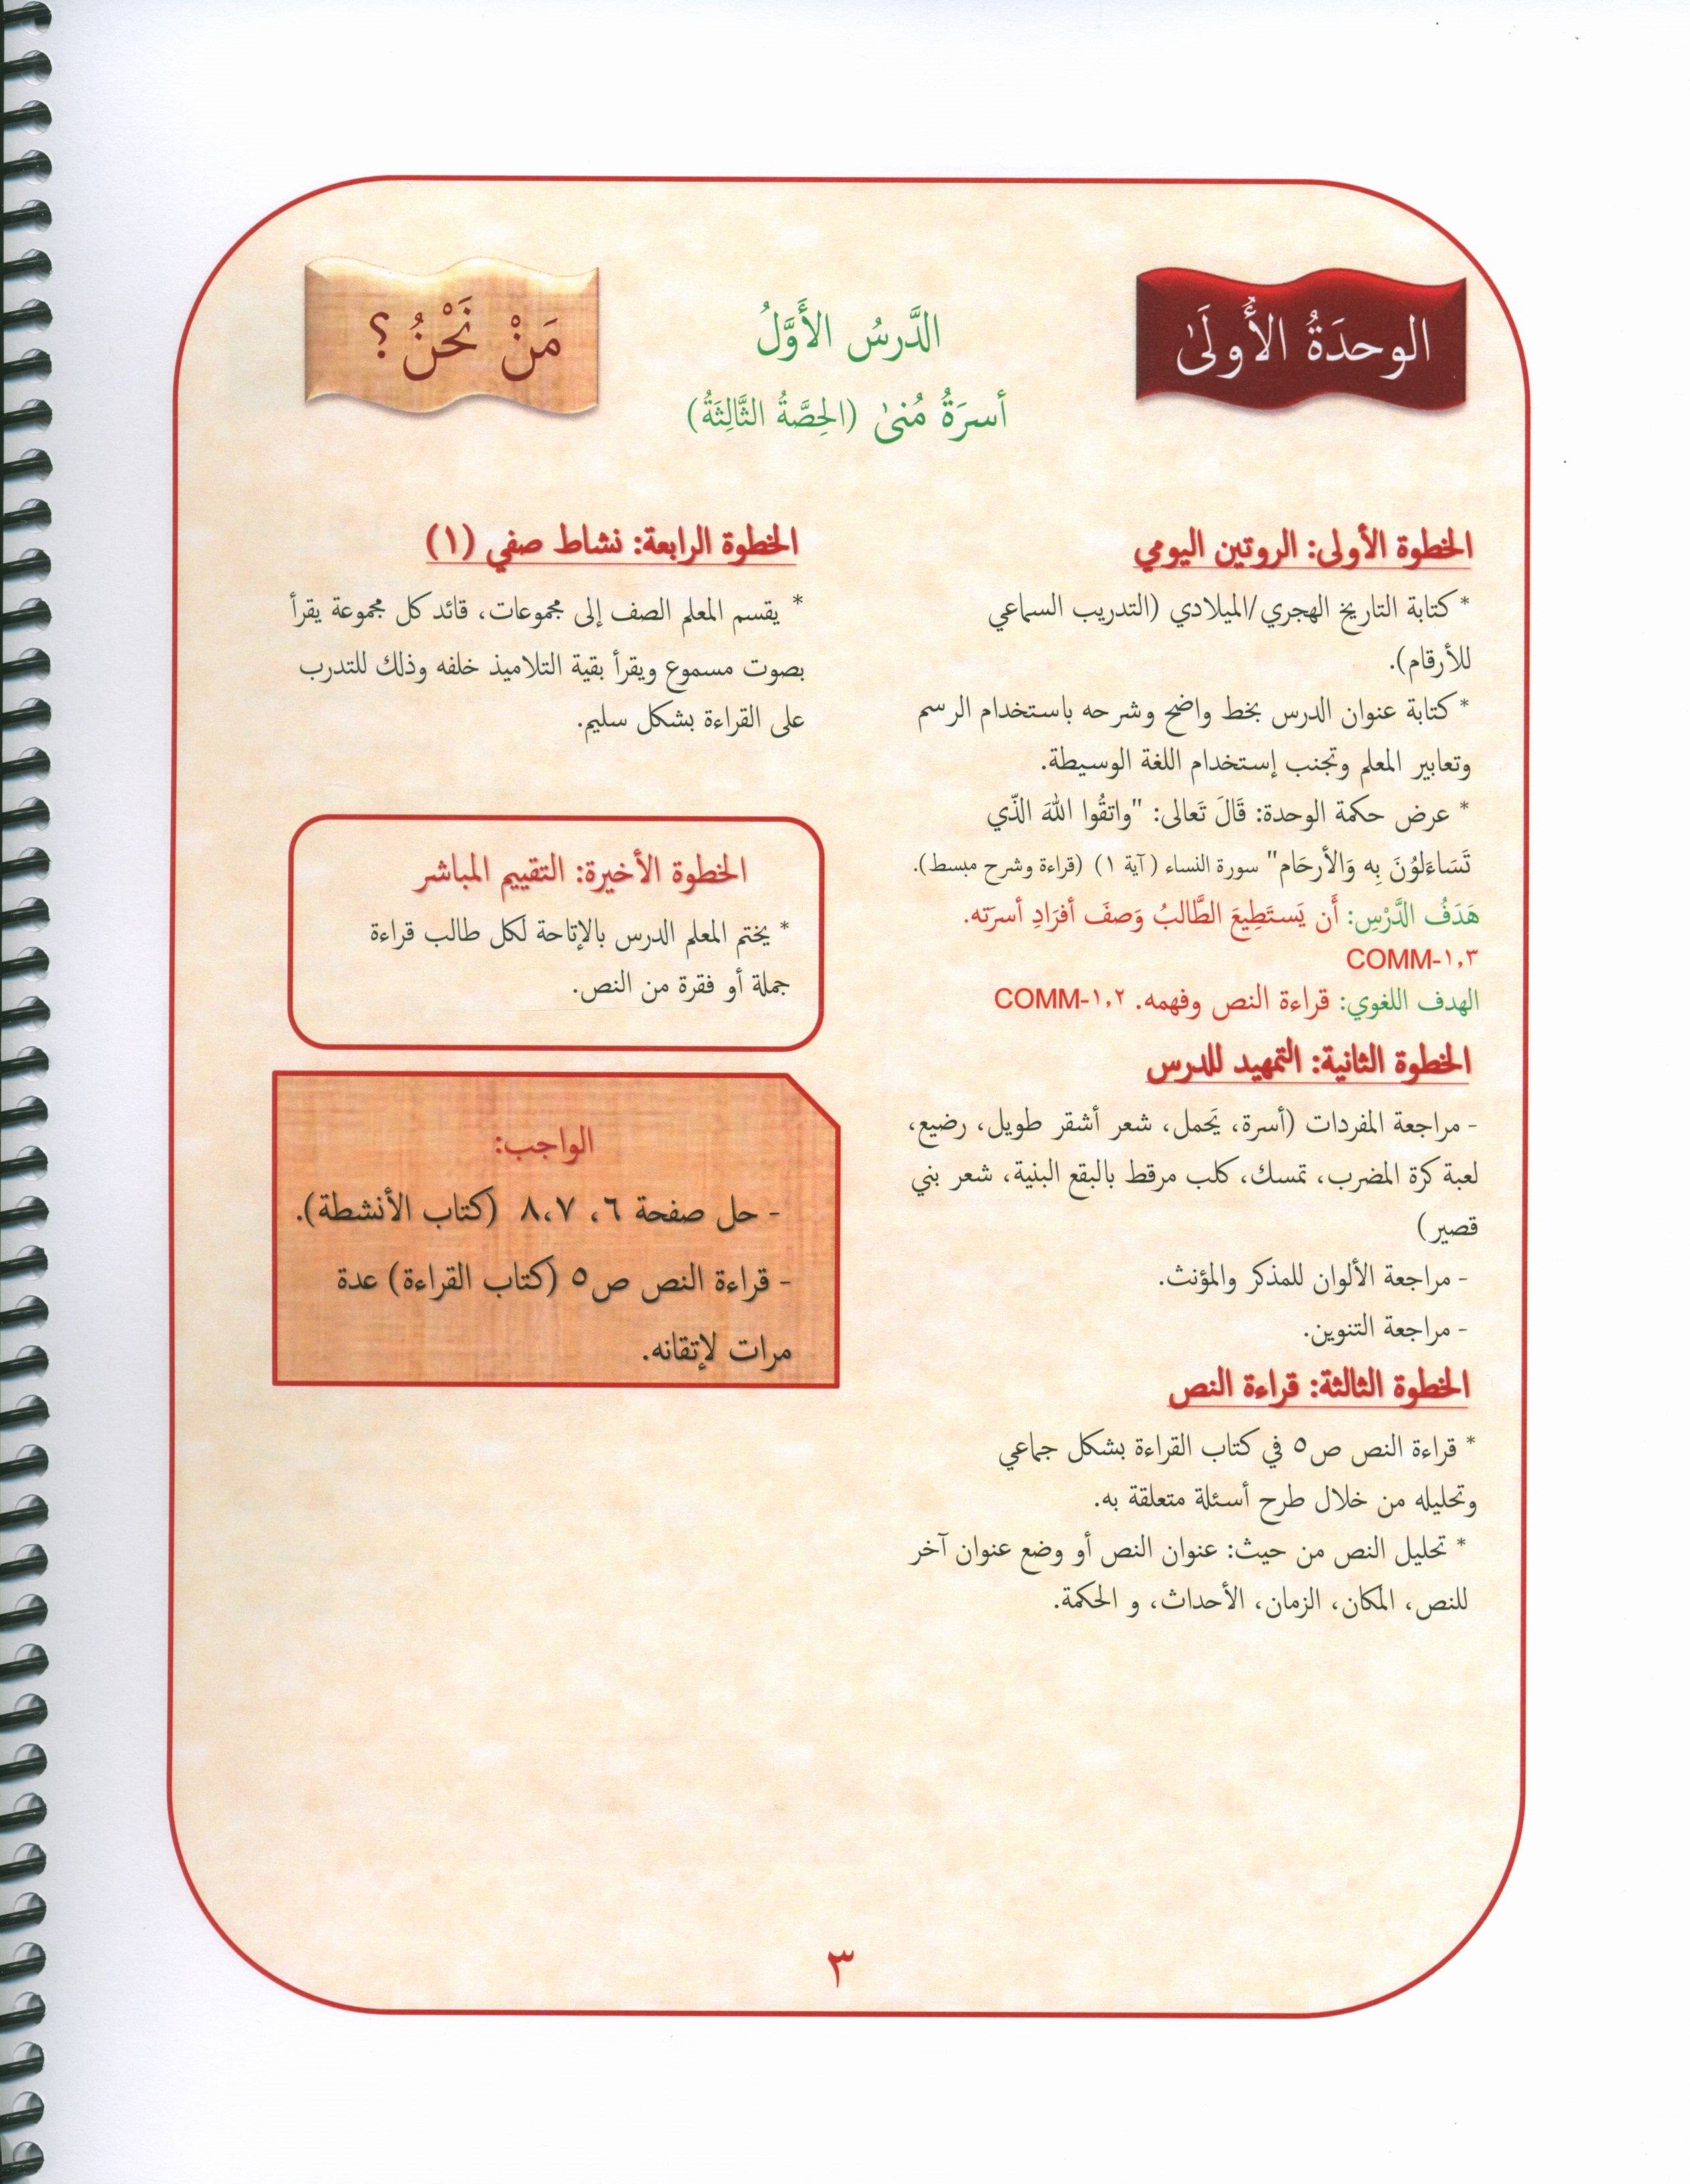 الوحدَةُ الأُولَىٰ
الدَّرسُ الأَوَّلُ
أسرَةُ مُنىٰ (الحِصَّةُ الثَّالِثَةُ)
مَنْ نَحْنُ ؟
الخطوة الأولى: الروتين اليومي
* كتابة التاريخ الهجري/الميلادي (التدريب السماعي
للأرقام).
* كتابة عنوان الدرس بخط واضح وشرحه باستخدام الرسم
وتعابير المعلم وتجنب إستخدام اللغة الوسيطة.
* عرض حكمة الوحدة: قَالَ تَعالى: "واتقُوا اللهَ الذّي
تَسَاءَلوُنَ بِه وَالأرحَام" سورة النساء (آية ١) (قراءة وشرح مبسط).
هَدَفُ الدَّرْسِ: أَن يَستَطِيعَ الطَّالبُ وَصفَ أفرَادِ أسرَته.
COMM-١,٣
الهدف اللغوي: قراءة النص وفهمه. COMM-١,٢
الخطوة الثانية: التمهيد للدرس
- مراجعة المفردات (أسرة، يَحمل، شعر أشقر طويل، رضيع،
لعبة كرة المضرب، تمسك، كلب مرقط بالبقع البنية، شعر بني
قصير)
- مراجعة الألوان للمذكر والمؤنث.
- مراجعة التنوين.
الخطوة الثالثة: قراءة النص
* قراءة النص ص٥ في كتاب القراءة بشكل جماعي
وتحليله من خلال طرح أسئلة متعلقة به.
* تحليل النص من حيث: عنوان النص أو وضع عنوان آخر
للنص، المكان، الزمان، الأحداث، و الحكمة.
الخطوة الرابعة: نشاط صفي (١)
* يقسم المعلم الصف إلى مجموعات، قائد كل مجموعة يقرأ
بصوت مسموع ويقرأ بقية التلاميذ خلفه وذلك للتدرب
على القراءة بشكل سليم.
الخطوة الأخيرة: التقييم المباشر
* يختم المعلم الدرس بالإتاحة لكل طالب قراءة
جملة أو فقرة من النص.
الواجب:
- حل صفحة ٦، ٨،٧ (كتاب الأنشطة).
- قراءة النص ص٥ (كتاب القراءة) عدة
مرات لإتقانه.
٣